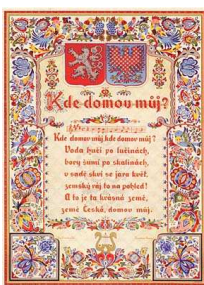 Kde domov můj?
Kde domov můj kde domov můj?
Voda hučí po lučinách,
bory šumí po skalinách,
v sadě skví se jara květ,
zemský ráj to na pohled!
A to je ta krásná země,
země Česká, domov můj.